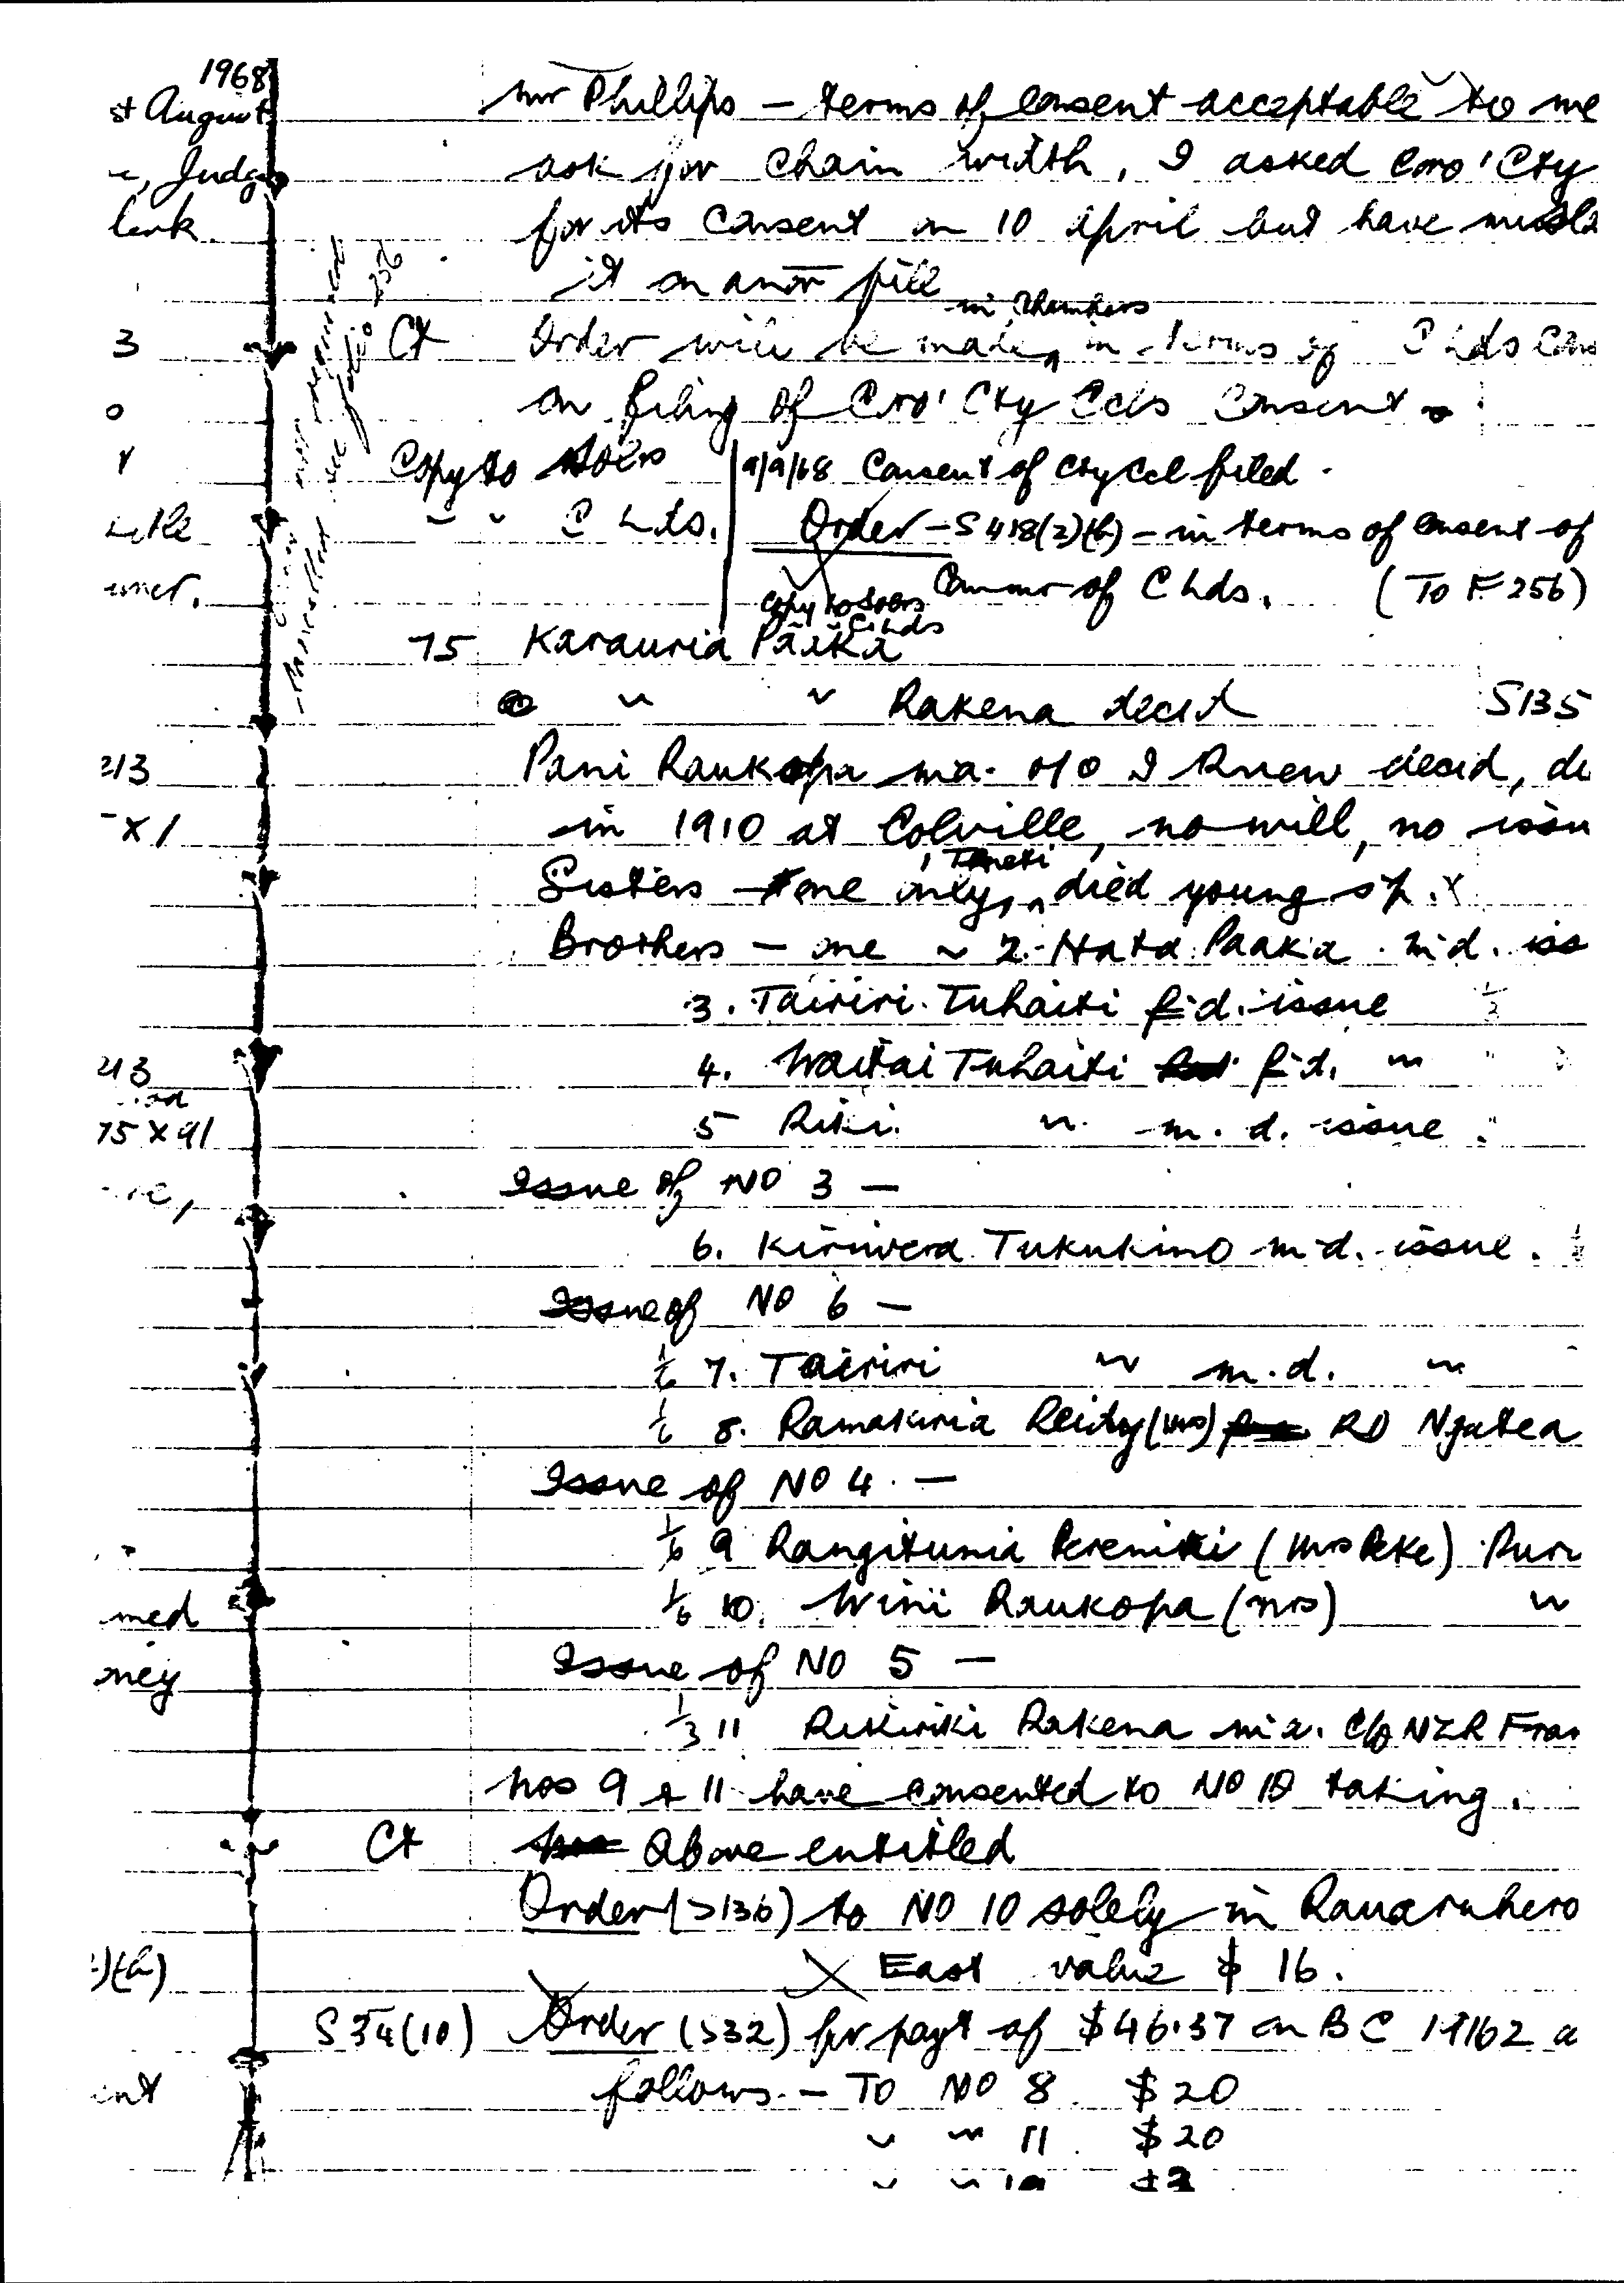 1968
st August
Judge
lerk
Mr Phillips — terms of consent acceptable to me
ask for chain width, I asked Coro' Cty
for its consent on 10 April but have
it on anor file
in Chambers
3 Ct Order will be made, in terms of C Lds
0 on filing of Coro' Cty Ccls consent
Copy to Solrs 9/9/68 Consent of Cty Ccl filed.
" " C Lds. Order — S 418(2)(h) — in terms of consent of
Commr of C Lds. (To F 256)
Copy to Solrs
C. Lds
75 Karauria Paaka
" " Rakena decd S135
213 Pani Raukopa m.a. o/o I knew decd, d
-x1 in 1910 at Colville, no will, no issu
Sisters — one only, died young sp. x
Brothers — one ~ 2. Hata Paaka m d. iss
3. Tairiri Tuhaiti f d. issue
213 4. Waitai Tuhaiti f d. "
75 x 91 5 Riki " m. d. issue
Issue of NO 3 —
6. Kiriwera Tukukino m d. issue.
Issue of NO 6 —
1/6 7. Tairiri " m. d. "
1/6 8. Ramakiria Reidy (Mrs) RD Ngatea
Issue of NO 4 —
1/6 9 Rangitunia (Mrs Peke)
med 1/6 10. Wini Raukopa (Mrs) "
ney Issue of NO 5 —
1/3 11 Rikiriki Rakena m a. C/o NZR Fran
Nos 9 & 11 have consented to NO 10 taking.
Ct Above entitled
Order (S136) to NO 10 solely in
)(h) East value $ 16.
S 34(10) Order (S32) for payt of $46.37 on BC 17162 a
ent follows — To NO 8 $20
" " 11 $20
" " 10